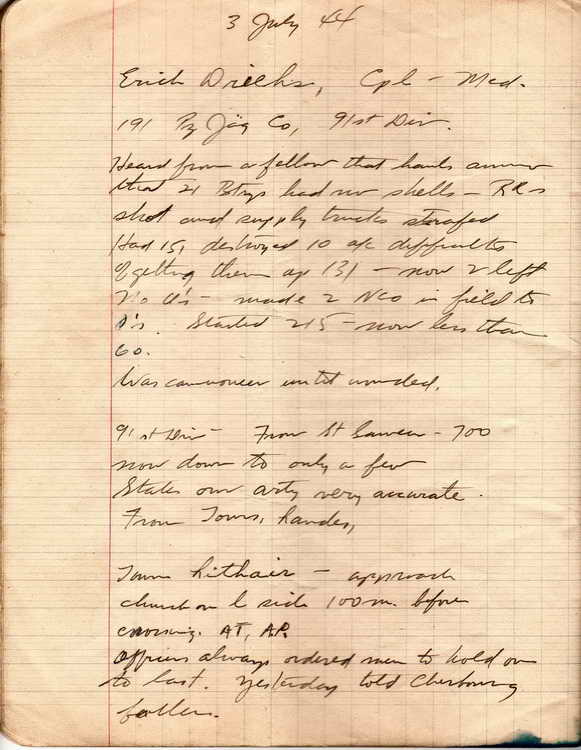 3 July 44
Erich Driehs, Cpl - Med.
191 Pz Jäg Co, 91st Div.
Heard from a fellow that hauls ammo
that 21 Btrys had no shells - RRs
shot and supply trucks strafed
Had 15, destroyed 10 a/c difficulties
of getting them up 131 - now 2 left
No O's - made 2 NCO in field to
O's. Started 215 - now less than
60.
Was cannoneer until wounded.
91st Div - From St - 700
now down to only a few
States our arty very accurate.
From Tours,
Town Lithair - approach
church on L side 100 m. before
crossing. AT, AP.
Officers always ordered men to hold on
to last. Yesterday told Cherbourg
fallen.